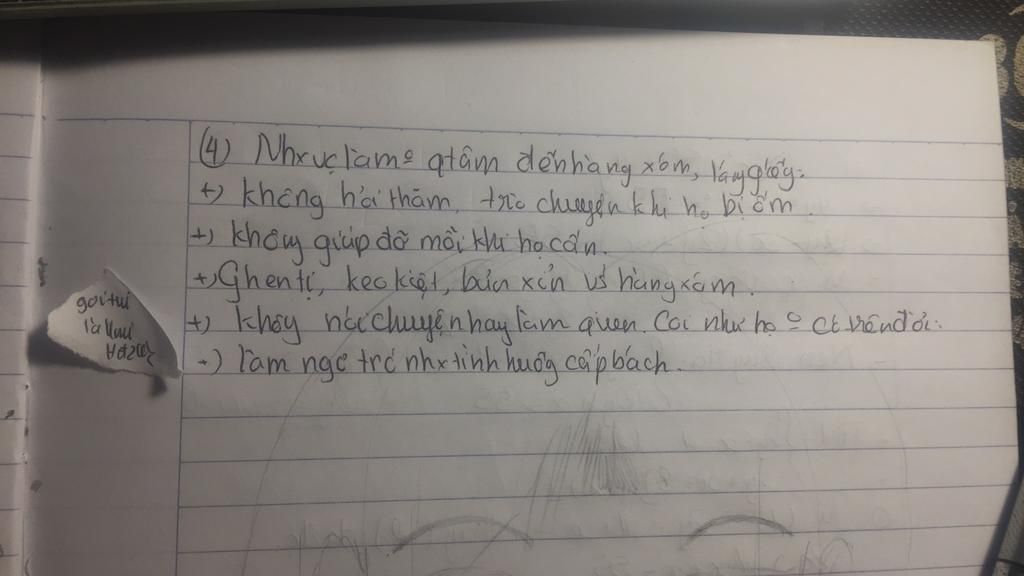 (4) Nhx vc làm º qtâm đến hàng xóm, láng giềng:
+) không hỏi thăm, trò chuyện khi họ bị ốm.
+) không giúp đỡ mỗi khi họ cần.
+) Ghen tị, keo kiệt, bủn xỉn vs hàng xóm.
+) không nói chuyện hay làm quen. Coi như họ º ct trên đời.
+) làm ngơ trc nhx tình huống cấp bách.
gọi tui
là